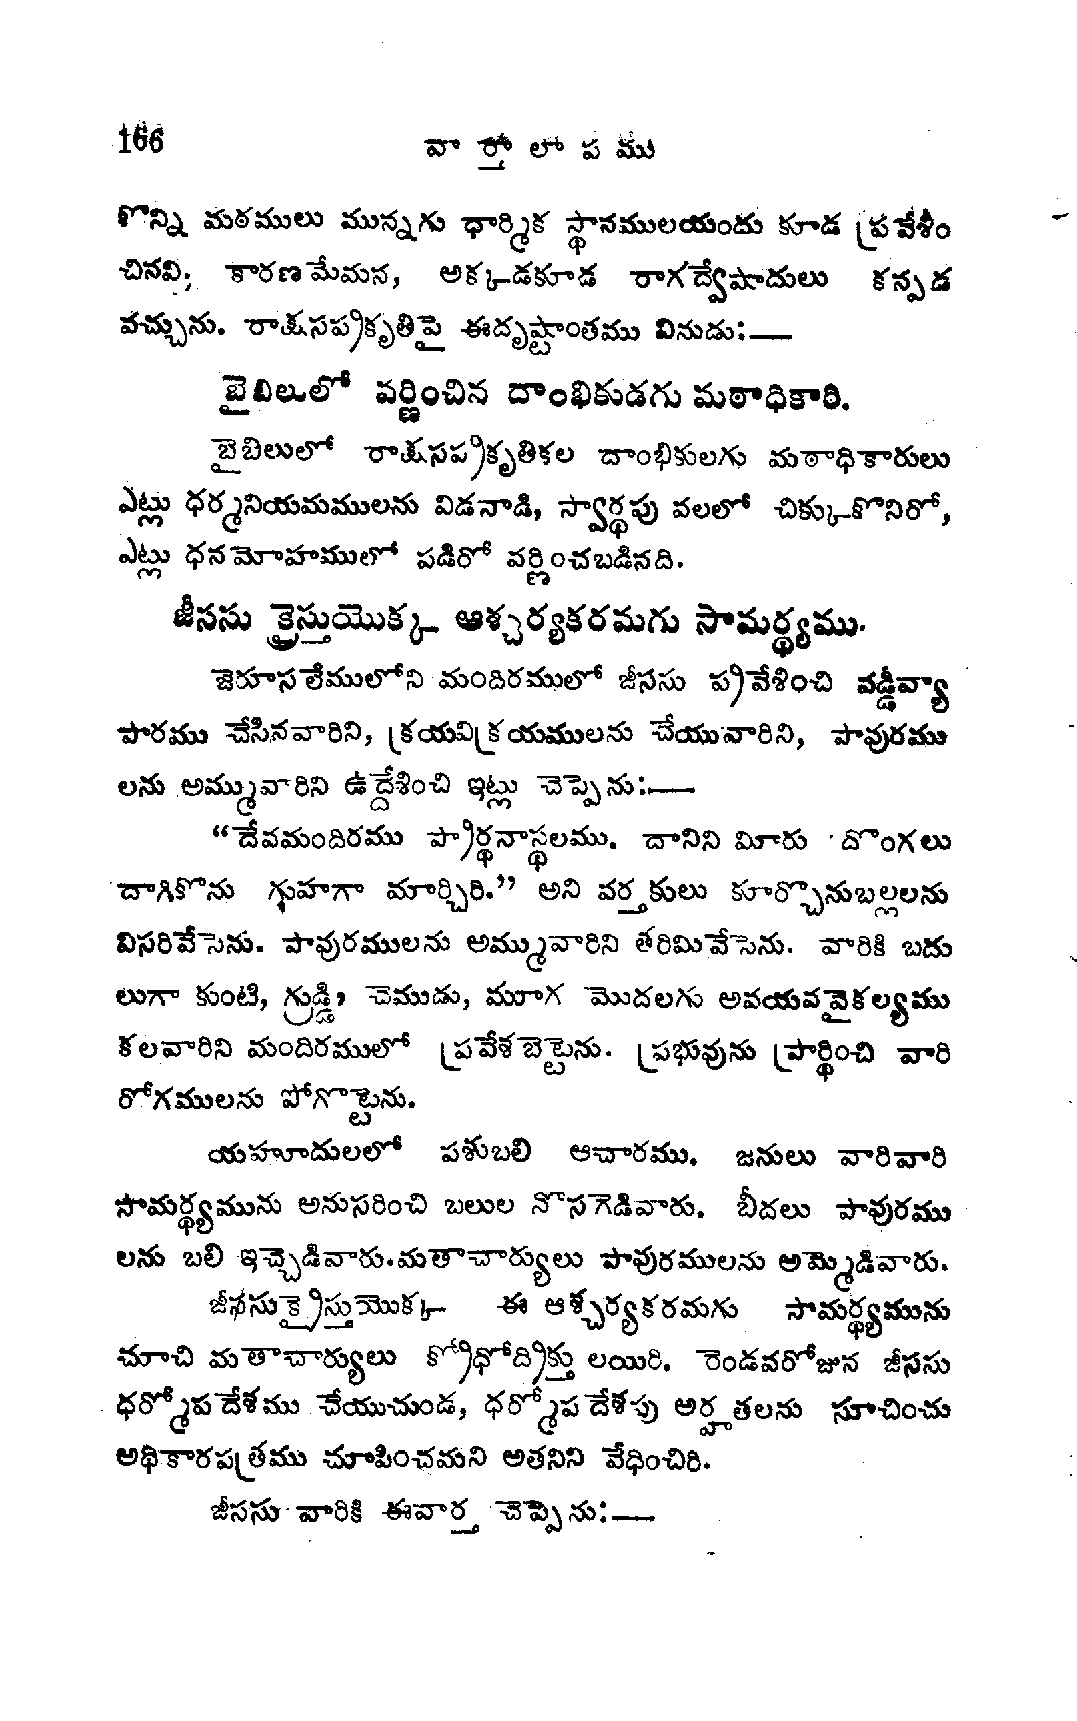 166
వార్తాలాపము
కొన్ని మఠములు మున్నగు ధార్మిక స్థానములయందు కూడ ప్రవేశిం
చినవి; కారణమేమన, అక్కడకూడ రాగద్వేషాదులు కన్పడ
వచ్చును. రాక్షసప్రకృతిపై ఈదృష్టాంతము వినుడు:—
బైబిలులో వర్ణించిన దాంభికుడగు మఠాధికారి.
బైబిలులో రాక్షసప్రకృతికల దాంభికులగు మఠాధికారులు
ఎట్లు ధర్మనియమములను విడనాడి, స్వార్థపు వలలో చిక్కుకొనిరో,
ఎట్లు ధనమోహములో పడిరో వర్ణించబడినది.
జీససు క్రైస్తుయొక్క ఆశ్చర్యకరమగు సామర్థ్యము.
జెరూసలేములోని మందిరములో జీససు ప్రవేశించి వడ్డీవ్యా
పారము చేసినవారిని, క్రయవిక్రయములను చేయువారిని, పావురము
లను అమ్మువారిని ఉద్దేశించి ఇట్లు చెప్పెను:—
“దేవమందిరము ప్రార్థనాస్థలము. దానిని మీరు దొంగలు
దాగికొను గుహగా మార్చిరి.” అని వర్తకులు కూర్చొనుబల్లలను
విసరివేసెను. పావురములను అమ్మువారిని తరిమివేసెను. వారికి బదు
లుగా కుంటి, గ్రుడ్డి, చెముడు, మూగ మొదలగు అవయవవైకల్యము
కలవారిని మందిరములో ప్రవేశబెట్టెను. ప్రభువును ప్రార్థించి వారి
రోగములను పోగొట్టెను.
యహూదులలో పశుబలి ఆచారము. జనులు వారివారి
సామర్థ్యమును అనుసరించి బలుల నొసగెడివారు. బీదలు పావురము
లను బలి ఇచ్చెడివారు. మతాచార్యులు పావురములను అమ్మెడివారు.
జీససుక్రైస్తుయొక్క ఈ ఆశ్చర్యకరమగు సామర్థ్యమును
చూచి మతాచార్యులు క్రోధోద్రిక్తు లయిరి. రెండవరోజున జీససు
ధర్మోపదేశము చేయుచుండ, ధర్మోపదేశపు అర్హతలను సూచించు
అధికారపత్రము చూపించమని అతనిని వేధించిరి.
జీససు వారికి ఈవార్త చెప్పెను:—